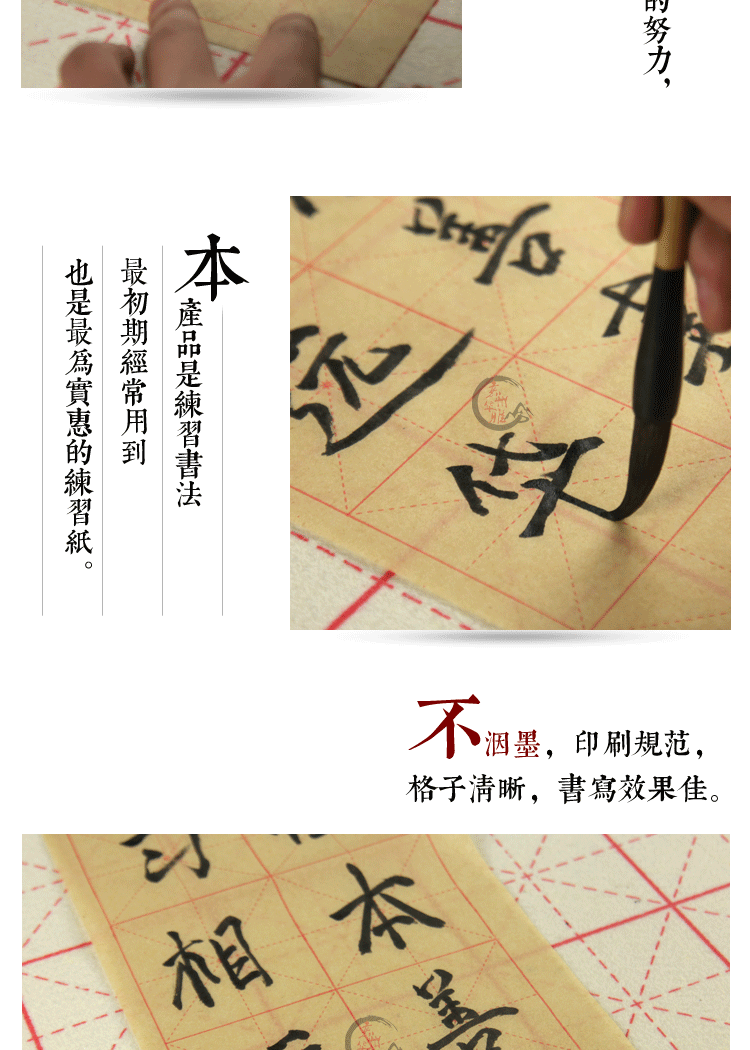 的努力，
本產品是練習書法
最初期經常用到
也是最爲實惠的練習紙。
遠
近
習
相
本
善
不洇墨，印刷規范，
格子清晰，書寫效果佳。